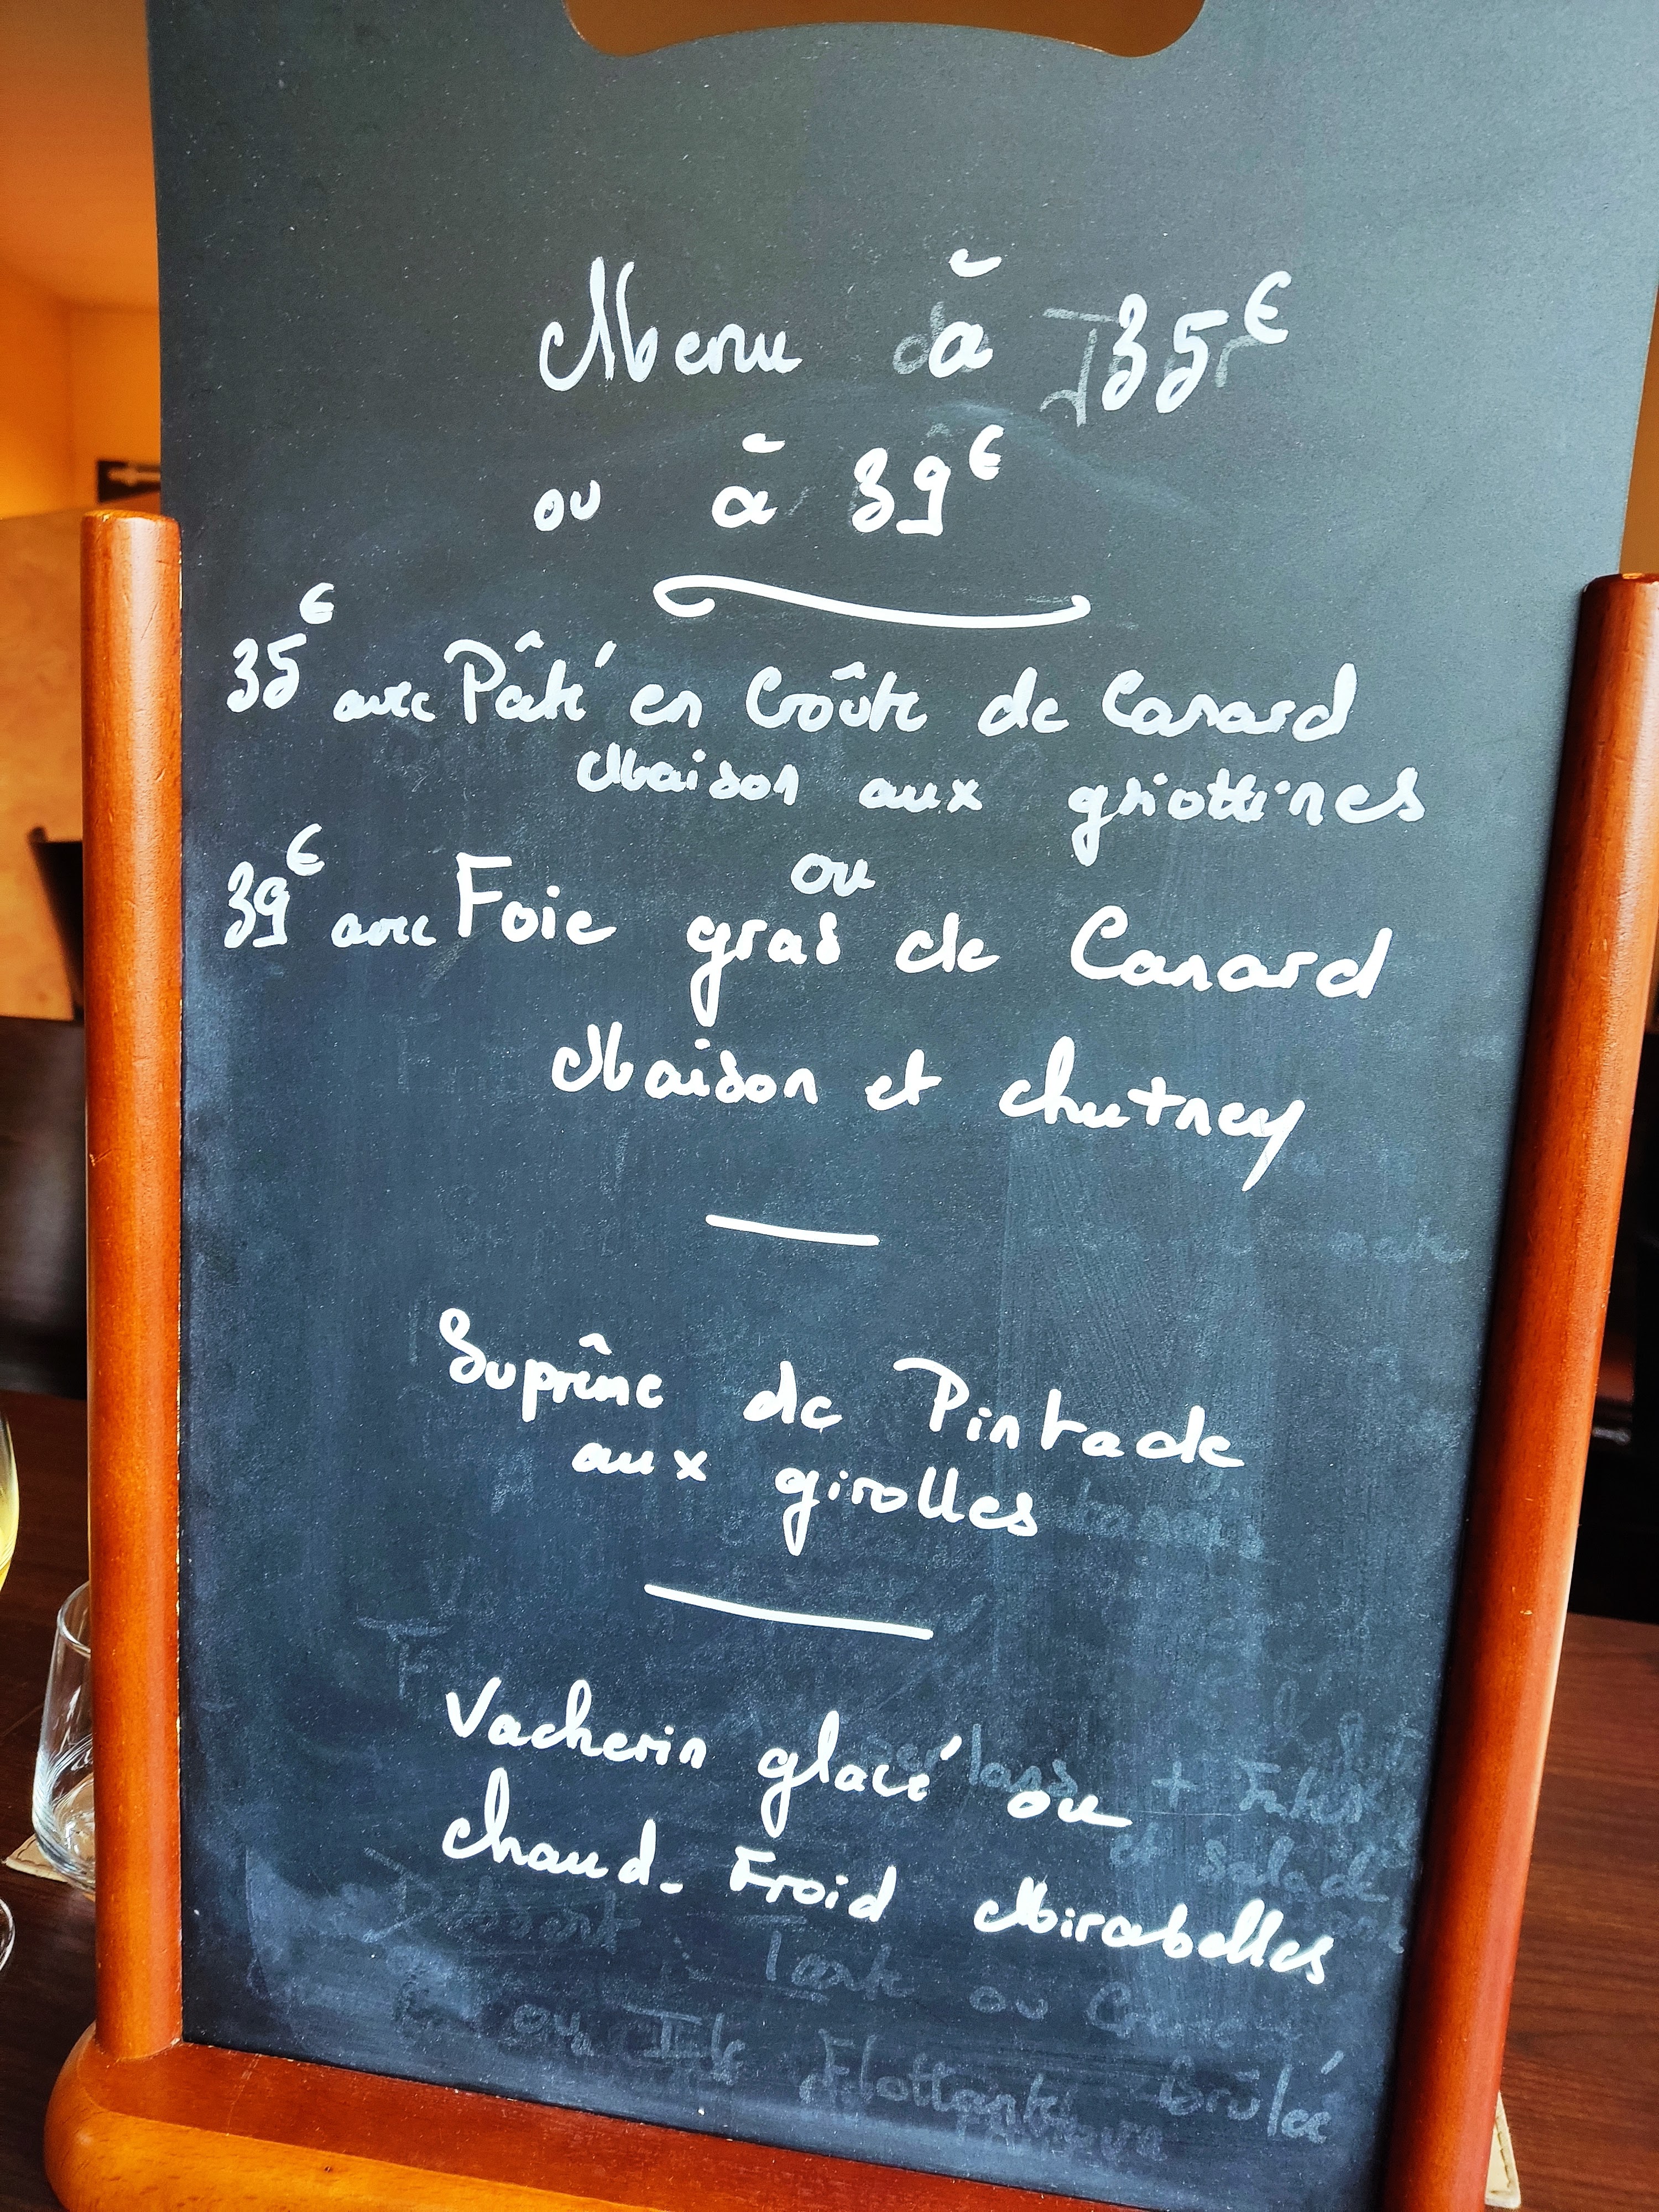 Menu à 35€
ou à 39€
35€ avec Pâté en Croûte de Canard
Maison aux griottines
ou
39€ avec Foie gras de Canard
Maison et chutney
Suprême de Pintade
aux girolles
Vacherin glacé ou
chaud-Froid Mirabelles
Tarte ou
ou Ile Flottante brûlée